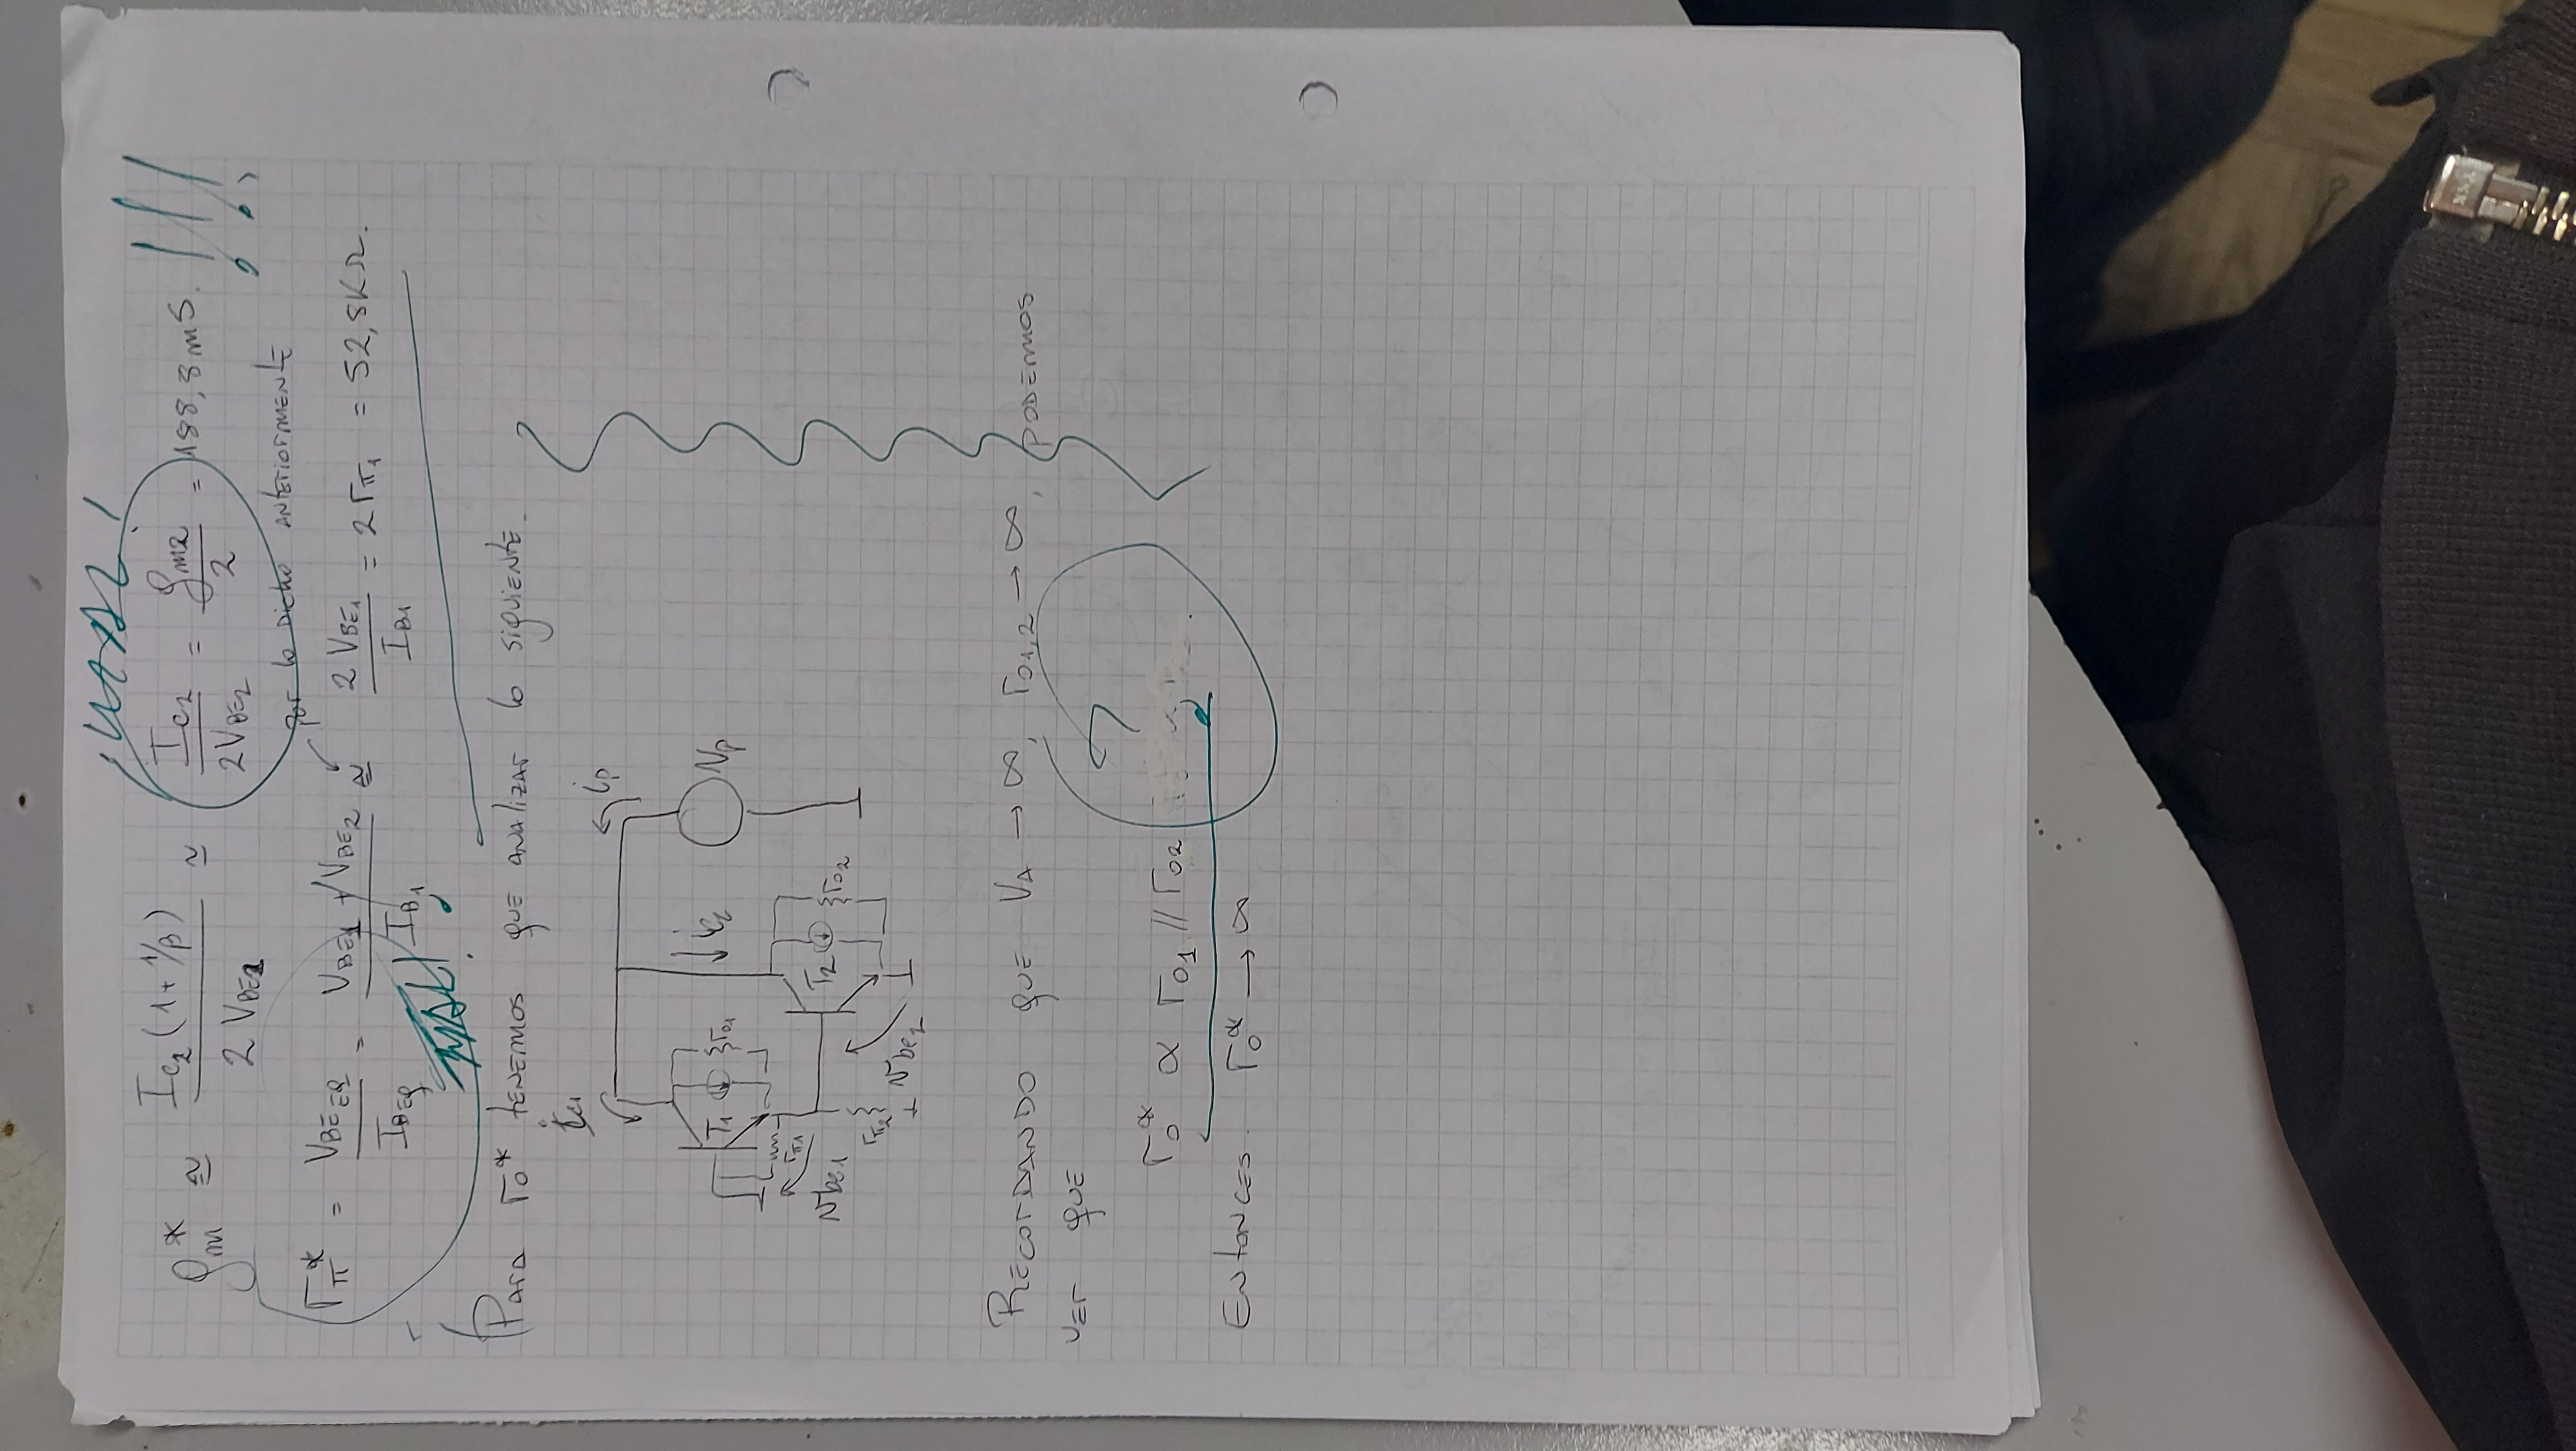 ¡MAL!
gm* ≅ Ic2 (1 + 1/β) / 2 VBE2 ≃ Ic2 / 2VBE2 = gm2 / 2 = 188,8 mS. !!!
por lo dicho anteriormente
rπ* = VBE EQ / IB EQ = VBE1 + VBE2 / IB1 ≅ 2 VBE1 / IB1 = 2 rπ1 = 52,8KΩ.
MAL!
Para ro* tenemos que analizar lo siguiente.
ic1
ip
T1 ro1 ic2 Vp
rπ1
Vbe1 T2 ro2
rπ2 Vbe2
Recordando que VA → ∞, ro1,2 → ∞, podemos
ver que
?
ro* ∝ ro1 // ro2
Entonces ro* → ∞